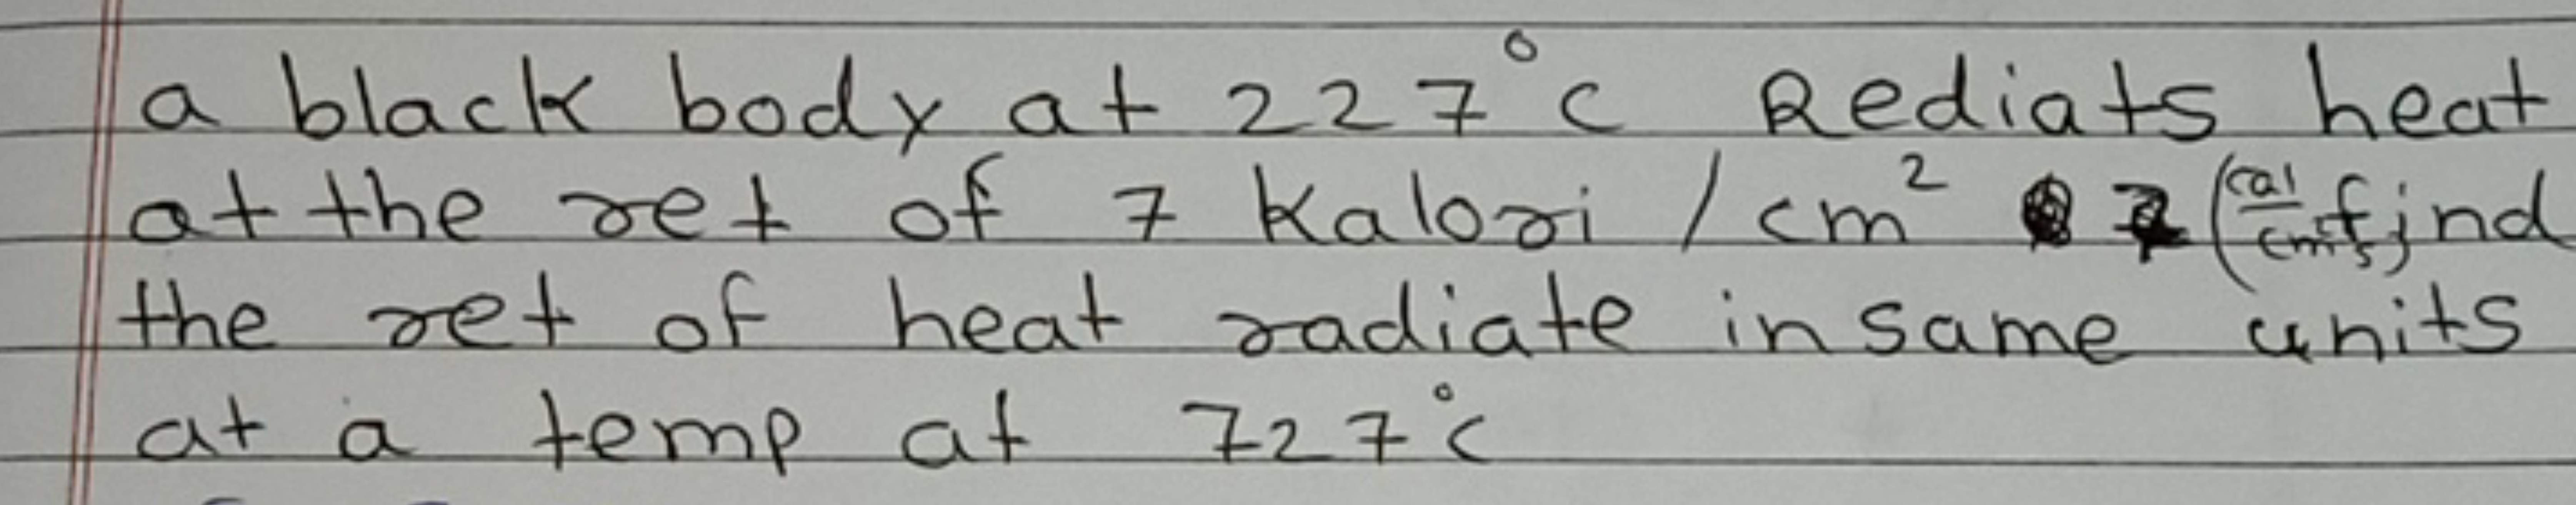 a black body at 227°c Rediats heat
at the ret of 7 Kalori / cm² (cal/cm²s) find
the ret of heat radiate in same units
at a temp at 727°c